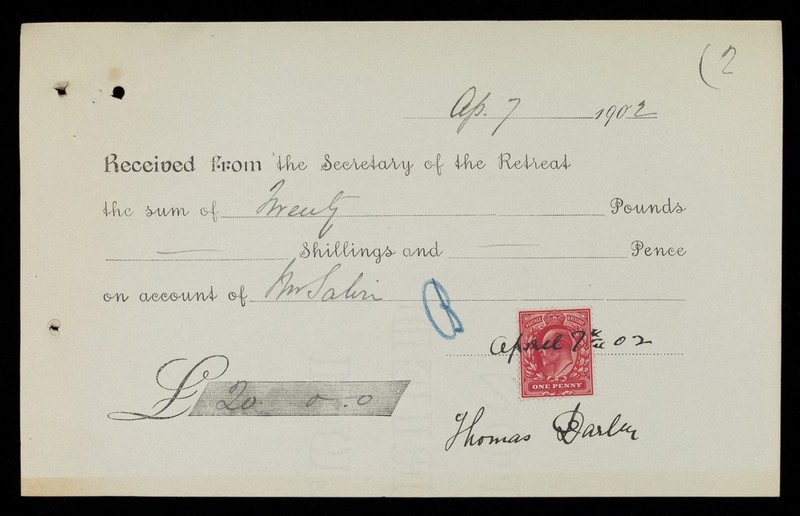 (2
Ap. 7 1902
Received From the Secretary of the Retreat
the sum of Twenty Pounds
Shillings and Pence
on account of Mr
April 7th 02
ONE PENNY
£ 20 0 . 0
Thomas Darley